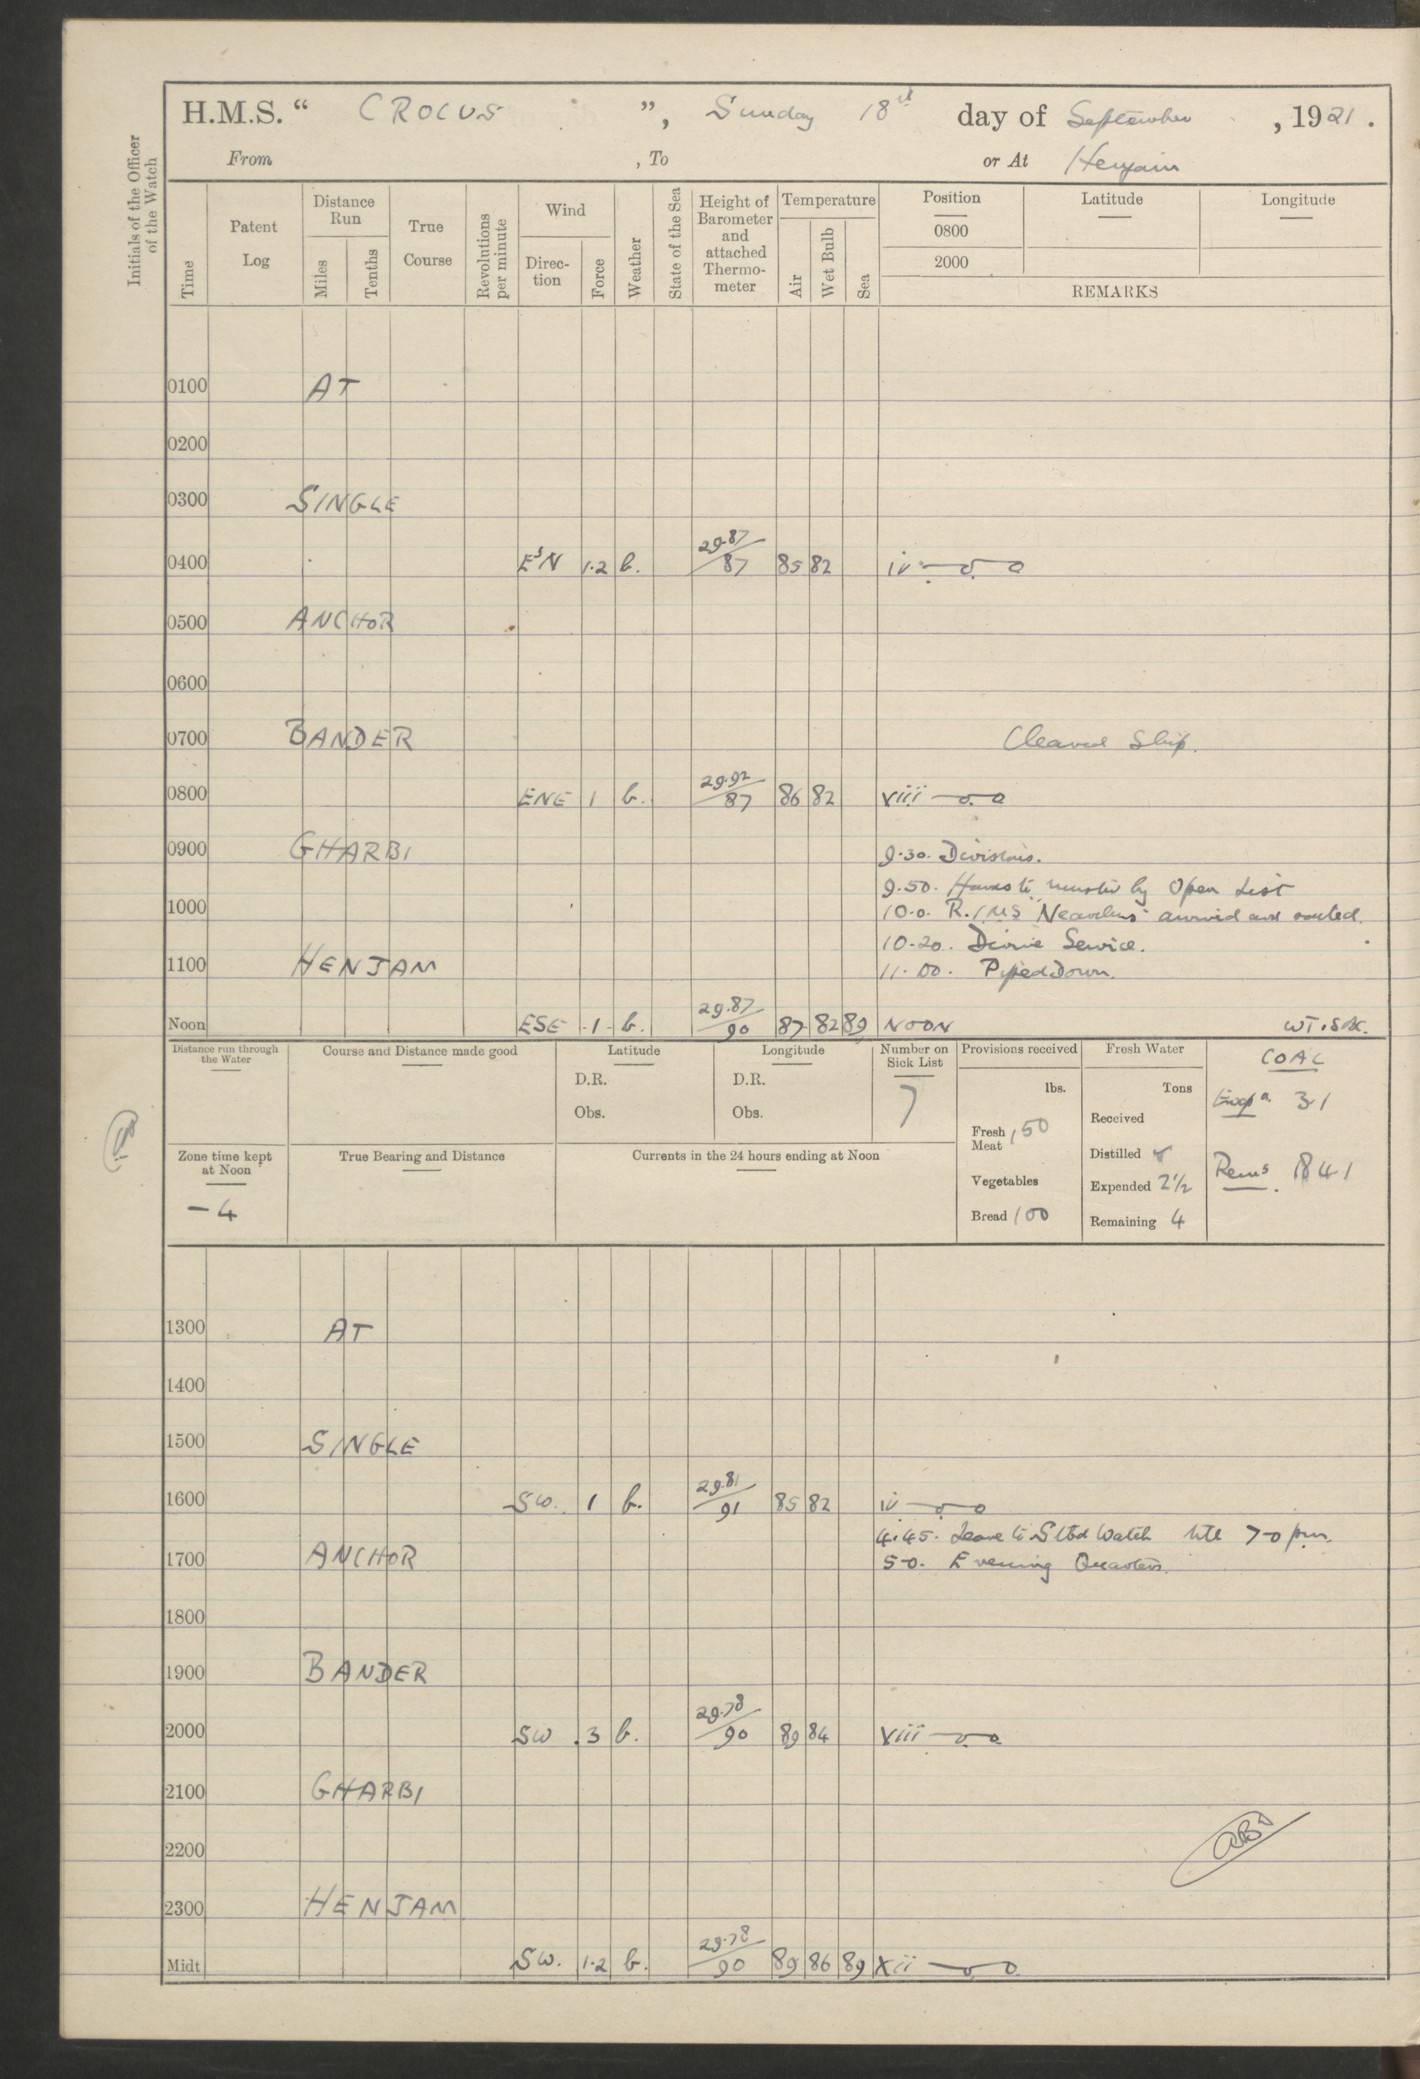 H.M.S. “ CROCUS ”, Sunday 18th day of September, 1921.
From , To or At Henjam
Initials of the Officer of the Watch
Time
Patent Log
Distance Run
Miles
Tenths
True Course
Revolutions per minute
Wind
Direc-tion
Force
Weather
State of the Sea
Height of Barometer and attached Thermo-meter
Temperature
Air
Wet Bulb
Sea
Position
0800
2000
Latitude
Longitude
REMARKS
0100 AT
0200
0300 SINGLE
0400 E'N 1.2 b. 29.87/87 85 82 iv
0500 ANCHOR
0600
0700 BANDER Cleaned Ship.
0800 ENE 1 b. 29.92/87 86 82 viii
0900 GHARBI 9.30. Divisions.
9.50. Hands to muster by Open List
1000 10.0. R.I.M.S. arrived and
10-20. Divine Service.
1100 HENJAM 11.00. Piped Down.
Noon ESE 1 b. 29.87/90 87 82 89 NOON
Distance run through the Water
Course and Distance made good
Latitude
D.R.
Obs.
Longitude
D.R.
Obs.
Number on Sick List
7
Provisions received
lbs.
Fresh Meat 150
Vegetables
Bread 100
Fresh Water
Tons
Received
Distilled
Expended 2½
Remaining 4
COAL
31
Rems. 841
Zone time kept at Noon
-4
True Bearing and Distance
Currents in the 24 hours ending at Noon
1300 AT
1400
1500 SINGLE
1600 SW. 1 b. 29.81/91 85 82 iv
4.45. Leave to Stbd Watch till 7-0 pm.
1700 ANCHOR 5-0. Evening Quarters.
1800
1900 BANDER
2000 SW . 3 b. 29.78/90 89 84 viii
2100 GHARBI
2200
2300 HENJAM
Midt SW. 1.2 b. 29.78/90 89 86 89 xii